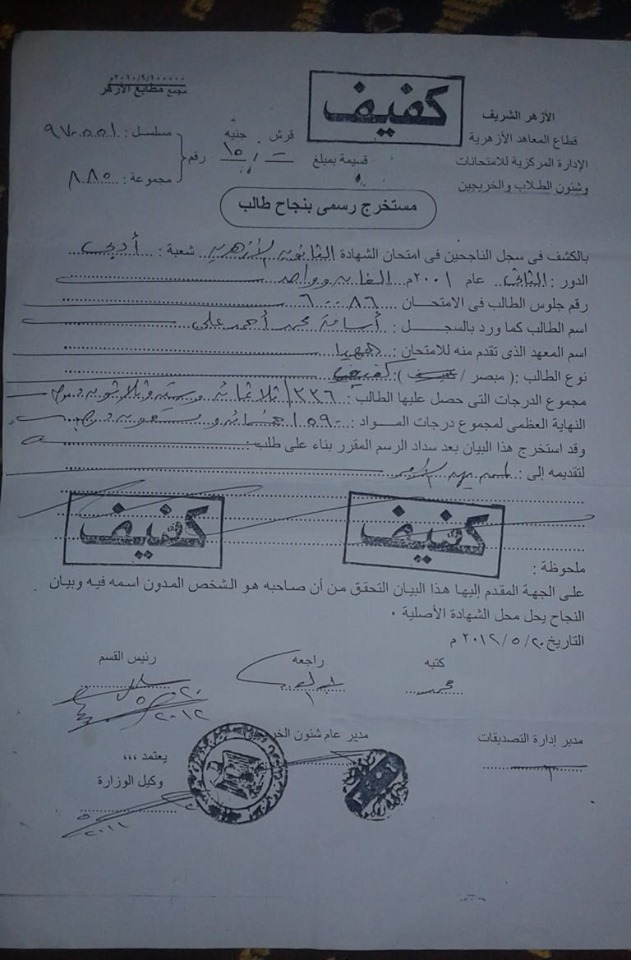 ٢٠١٠/٩/١٠٠٠٠٠م
مجمع مطابع الأزهر
كفيف
الأزهر الشريف
قطاع المعاهد الأزهرية
الإدارة المركزية للامتحانات
وشئون الطلاب والخريجين
قرش جنيه
قسيمة بمبلغ ١٥ رقم
مسلسل : ٩٧٠٥٥١
مجموعة : ٨٨٥
مستخرج رسمى بنجاح طالب
بالكشف فى سجل الناجحين فى امتحان الشهادة الثانوية الأزهرية شعبة : أدبى
الدور : الثانى عام ٢٠٠١م ألفان وواحد
رقم جلوس الطالب فى الامتحان ٦٠٠٨٦
اسم الطالب كما ورد بالسجل : أسامة محمد أحمد على
اسم المعهد الذى تقدم منه للامتحان : ههيا
نوع الطالب : ( مبصر / كفيف ) : كفيف
مجموع الدرجات التى حصل عليها الطالب : ٣٣٦ ثلاثمائة وستة وثلاثون درجة
النهاية العظمى لمجموع درجات المواد : ٥٩٠ خمسمائة وتسعون درجة
وقد استخرج هذا البيان بعد سداد الرسم المقرر بناء على طلب :
لتقديمه إلى :
كفيف كفيف
ملحوظة :
على الجهة المقدم إليها هذا البيان التحقق من أن صاحبه هو الشخص المدون اسمه فيه وبيان
النجاح يحل محل الشهادة الأصلية ٠
التاريخ ٢٠١٢/٥/٢٠ م
كتبه راجعه رئيس القسم
محمد
٢٠
٥
٢٠١٢
مدير إدارة التصديقات مدير عام شئون الخر
يعتمد ،،،
وكيل الوزارة